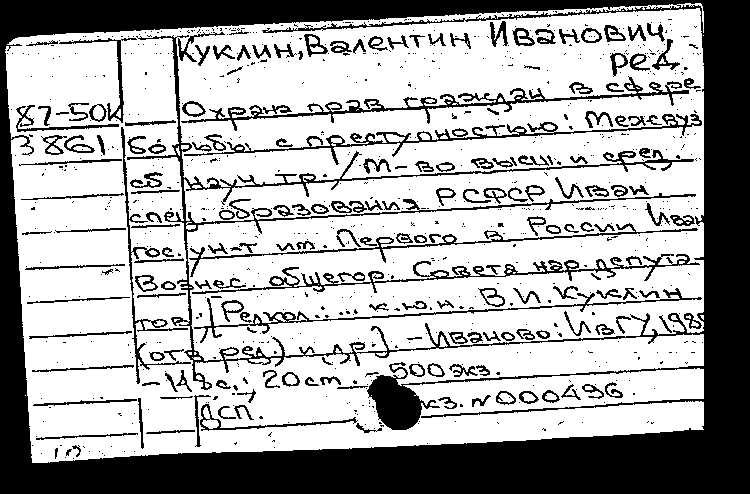 Куклин, Валентин Иванович,
ред.
87-50К Охрана прав граждан в сфере
3861 борьбы с преступностью: Межвуз
сб. науч. тр. / М-во высш. и сред.
спец. образования РСФСР, Иван.
гос. ун-т им. Первого в России Иван
Вознес. общегор. Совета нар. депута-
тов; [Редкол.: ... к.ю.н. В.И. Куклин
(отв. ред.) и др.]. - Иваново: ИвГУ, 198
- 148 с.; 20 см. - 500 экз.
ДСП. кз. N 000496